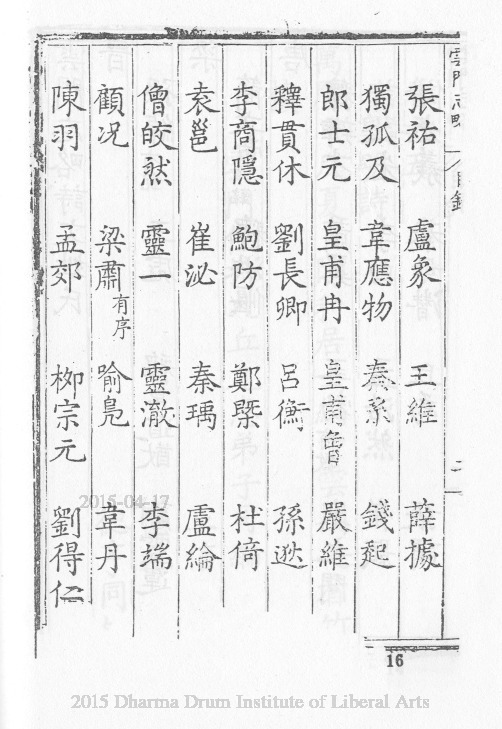 雲門志略
目錄
張祐 盧象 王維 薛據
獨孤及 韋應物 秦系 錢起
郎士元 皇甫冉 皇甫曾 嚴維
釋貫休 劉長卿 呂衡 孫逖
李商隱 鮑防 鄭槩 杜倚
袁邕 崔泌 秦瑀 盧綸
僧皎然 靈一 靈澈 李端
顧况 梁肅有序 喻鳧 韋丹
陳羽 孟郊 柳宗元 劉得仁
16
2015-04-17
2015 Dharma Drum Institute of Liberal Arts